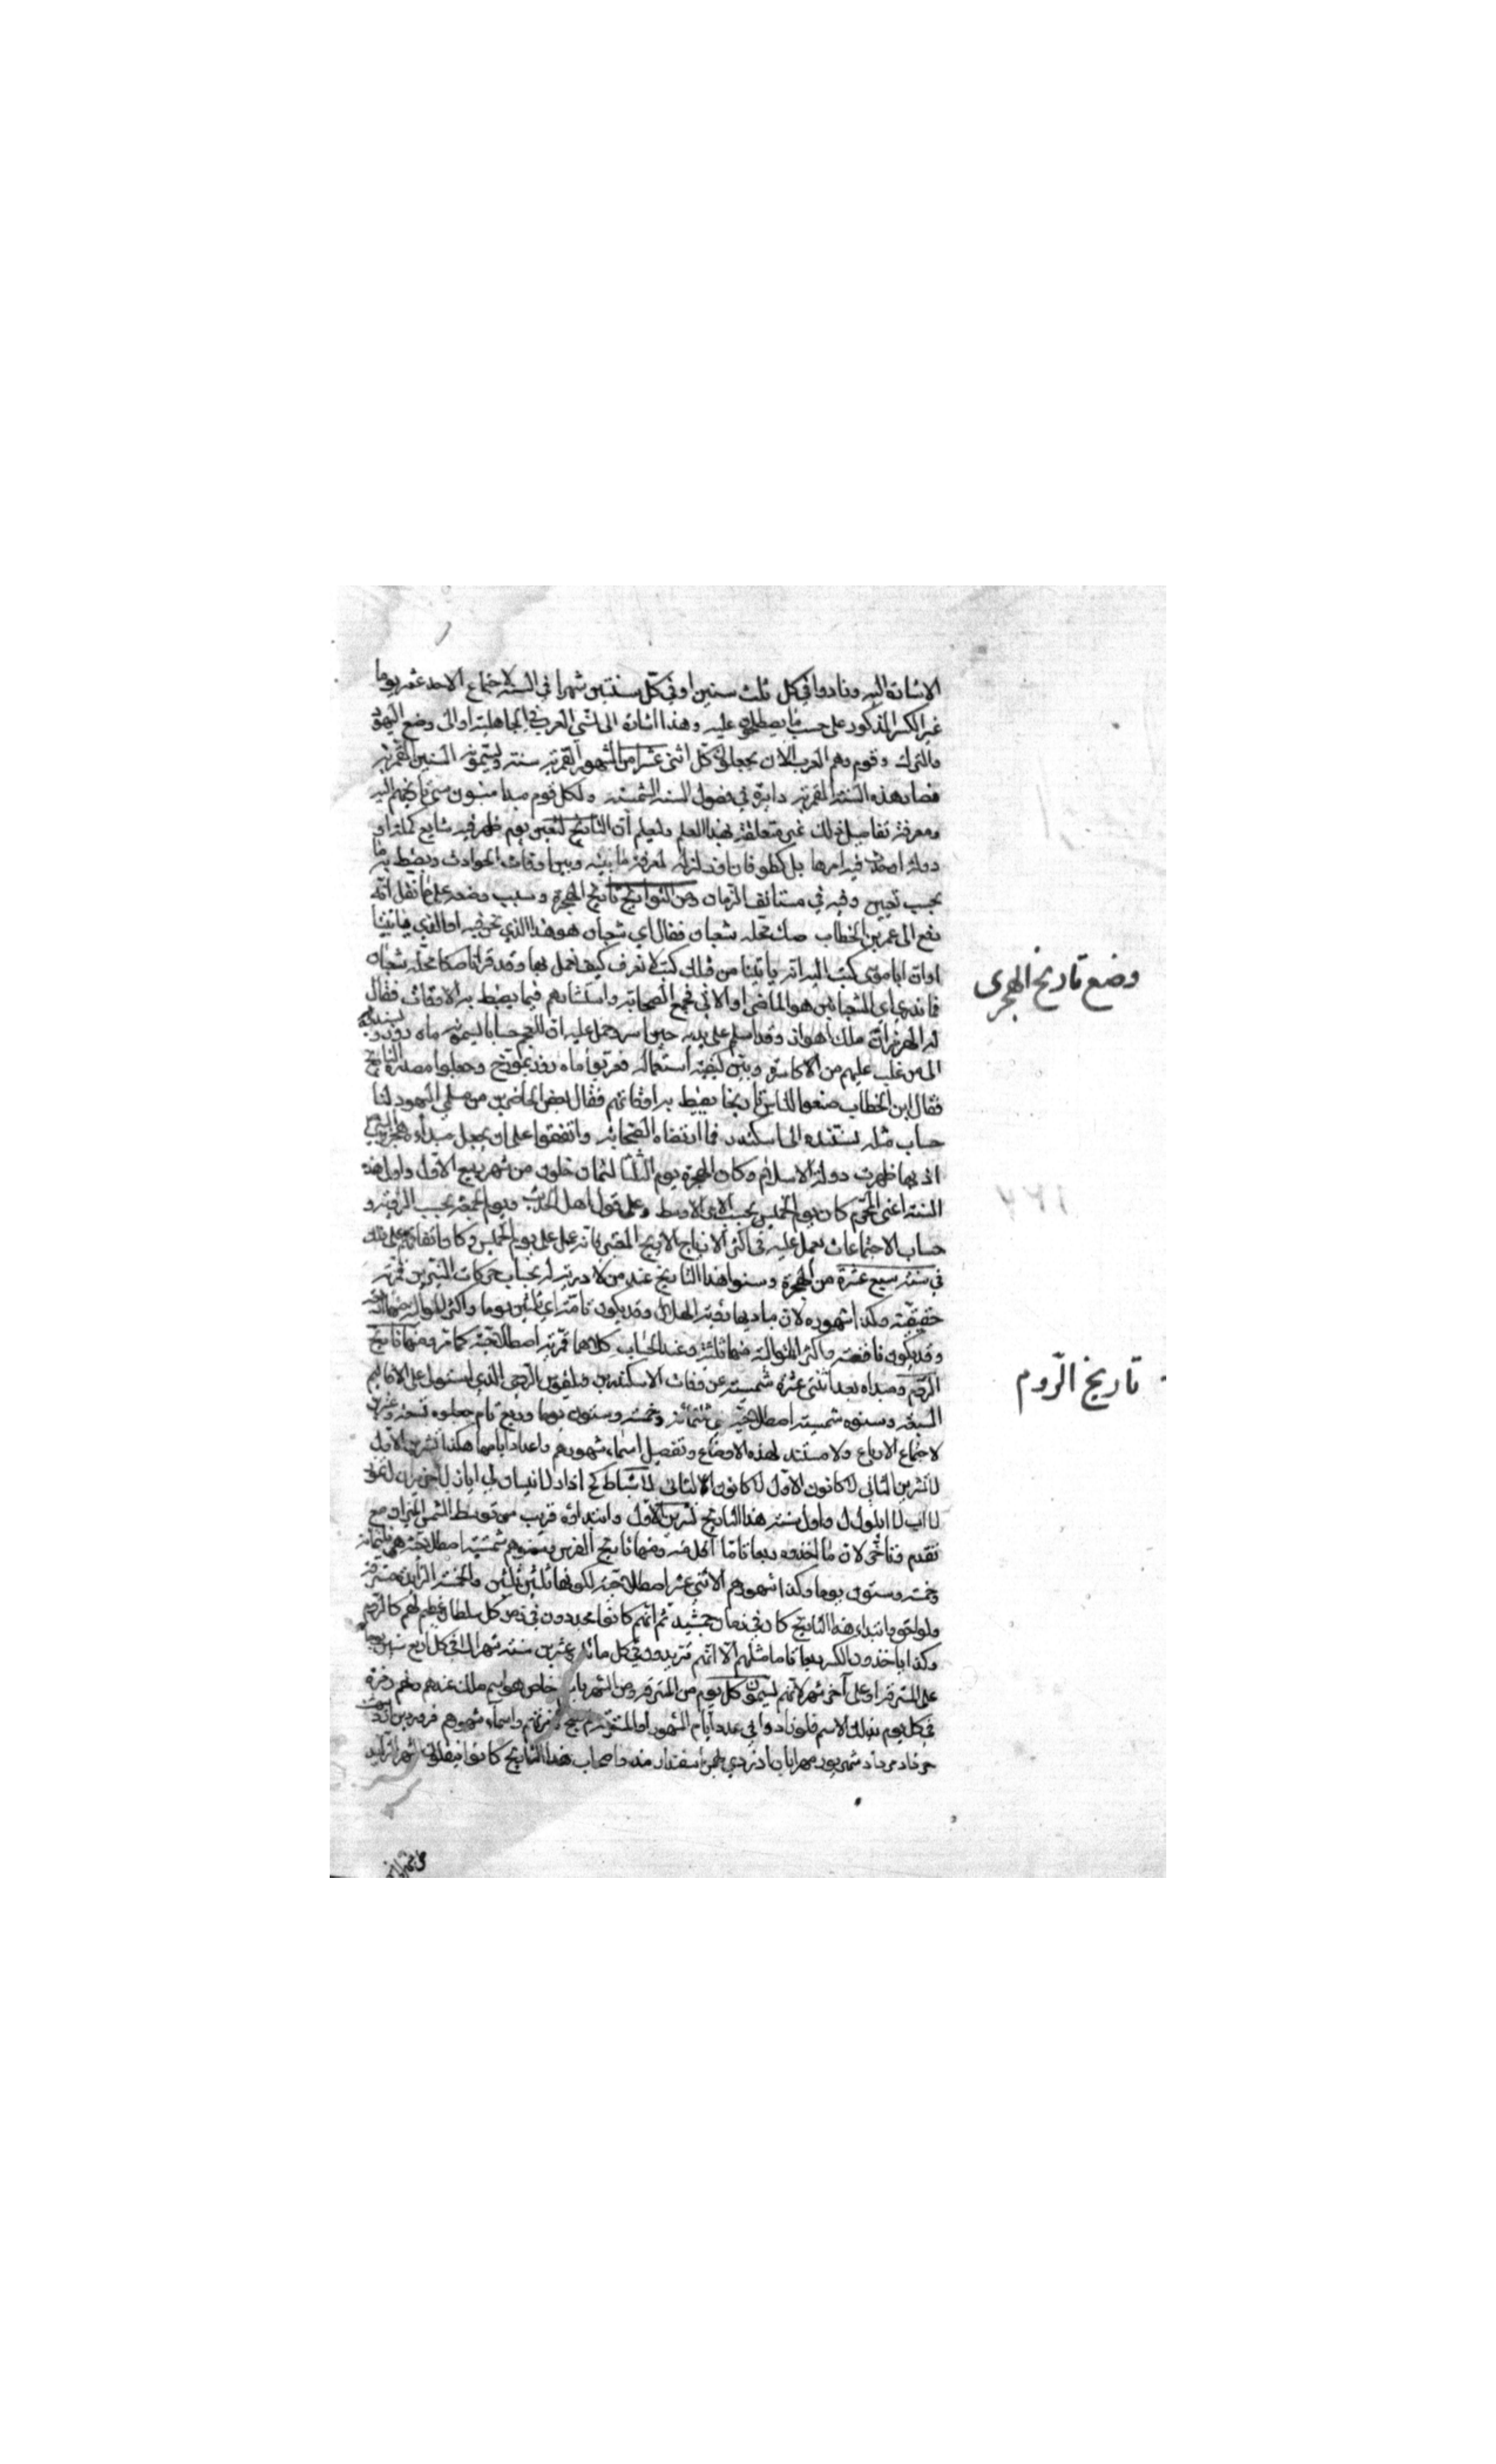 الاشارة اليه وزادوا في كل ثلث سنين او في كل سنتين شهرا في السنة لاجتماع الاحد عشر يوما
غير الكسر المذكور على حسب ما يصطلحون عليه وهذا اشارة الى العرب في الجاهلية او الى وضع اليهود
والترك وقوم وهم العرب الان يجعلون كل اثنى عشر من الشهور القمرية سنة ويسمونه السنين القمرية
فصار هذه السنة القمرية دايرة في فصول السنة الشمسية ولكل قوم مبدا منه
ومعرفة تفاصيل ذلك غير متعلقة بهذا العلم وليعلم ان التاريخ تعين يوم ظهر فيه شايع كملة او
دولة او حدث فيه كطوفان او زلزلة لمعرفة ما بينه وبين اوقات الحوادث ويضبط به ما
يجب تعيين وقته في مستانف الزمان ومن التواريخ تاريخ الهجرة وسبب وضعه على ما نقل انه
دفع الى عمر بن الخطاب صك محله شعبان فقال اي شعبان هو هذا الذي نحن فيه او الذي ياتينا
او ان ابا موسى كتب اليه انه ياتينا من قبلك كتب لا نعرف كيف نعمل بها وقد قرانا صكا محله شعبان
فما ندري اي الشعبانين هو الماضي او الاتي فجمع الصحابة واستشارهم فيما يضبط به الاوقات فقال
له الهرمزان ملك اهواز وقد اسلم على يديه حين اسر وحمل عليه ان للعجم حسابا يسمونه ماه روز
الى من غلب عليهم من الاكاسرة وبين كيفية استعماله فعربوا ماه روز بمورخ وجعلوا مصدره التاريخ
فقال ابن الخطاب ضعوا للناس تاريخا يضبط به اوقاتهم فقال بعض الحاضرين من مسلمي اليهود لنا
حساب مثله نسنده الى اسكندر فما ارتضاه الصحابة واتفقوا على ان يجعل مبدأه هجرة النبي
اذ بها ظهرت دولة الاسلام وكان الهجرة يوم الثلثا لثمان خلون من شهر ربيع الاول واول هذه
السنة اعني المحرم كان يوم الخميس بحسب الامر الاوسط وعلى قول اهل الحديث ويوم الجمعة بحسب الرؤية و
حساب الاجتماعات يعمل عليه في اكثر الازياج الا زيج المعتبر فانه عمل على يوم الخميس وكان اتفاقهم على ذلك
في سنة سبع عشرة من الهجرة وسنوا هذا التاريخ بحساب حركات النيرين قمرية
حقيقية وكذا شهوره لان مباديها رؤية الهلال وقد يكون تامة اي ثلثين يوما واكثر المتوالية منها اربعة
وقد يكون ناقصة واكثر المتوالية منها ثلثة وعند الحساب كلاهما قمرية اصطلاحية كما مر ومنها تاريخ
الروم ومبداه بعد اثنتي عشرة شمسية عن وفات الاسكندر بن فيلقوس الرومي الذي استولى على الاقاليم
السبعة وسنوه شمسية اصطلاحية هي ثلثمائة وخمسة وستون يوما وربع تام
لاجتماع الارباع ولا مستند لهذه الاوضاع وتفصيل اسماء شهورهم واعداد ايامها هكذا تشرين الاول
لا تشرين الثاني ل كانون الاول لا كانون الثاني لا شباط كح اذار لا نيسان ل ايار لا حزيران ل تموز
لا اب لا ايلول ل واول سنة هذا التاريخ تشرين الاول وابتداؤه قريب من توسط الشمس الميزان مع
تقدم وتاخر لان ما اخذوه ربعا تاما اقل منه ومنها تاريخ الفرس وسنوهم شمسية اصطلاحية هي ثلثمائة
وخمسة وستون يوما وكذا شهورهم الاثنى عشر اصطلاحية لكونها ثلثين ثلثين والخمسة الزايدة مسترقة
ولواحق وابتداء هذا التاريخ كان في زمان جمشيد ثم انهم كانوا يجددون في زمن كل سلطان عظيم لهم كالروم
وكذا ياخذون الكسر ربعا تاما مثلهم الا انهم يزيدون في كل مائة وعشرين سنة شهرا لا في كل اربع سنين يوما
على المسترقة او على آخر شهر لانهم يسمون كل يوم من المسترقة ومن الشهر باسم خاص هو اسم ملك عندهم
في كل يوم بذلك الاسم فلو زادوا في عدد ايام الشهور او المسترقة واسماء شهورهم فروردين اردبهشت
خرداد مرداد شهريور مهر ابان اذر دي بهمن اسفندارمذ واصحاب هذا التاريخ كانوا ينقلون الشهر الزايد
وضع تاريخ الهجرى
١٢٧
تاريخ الروم